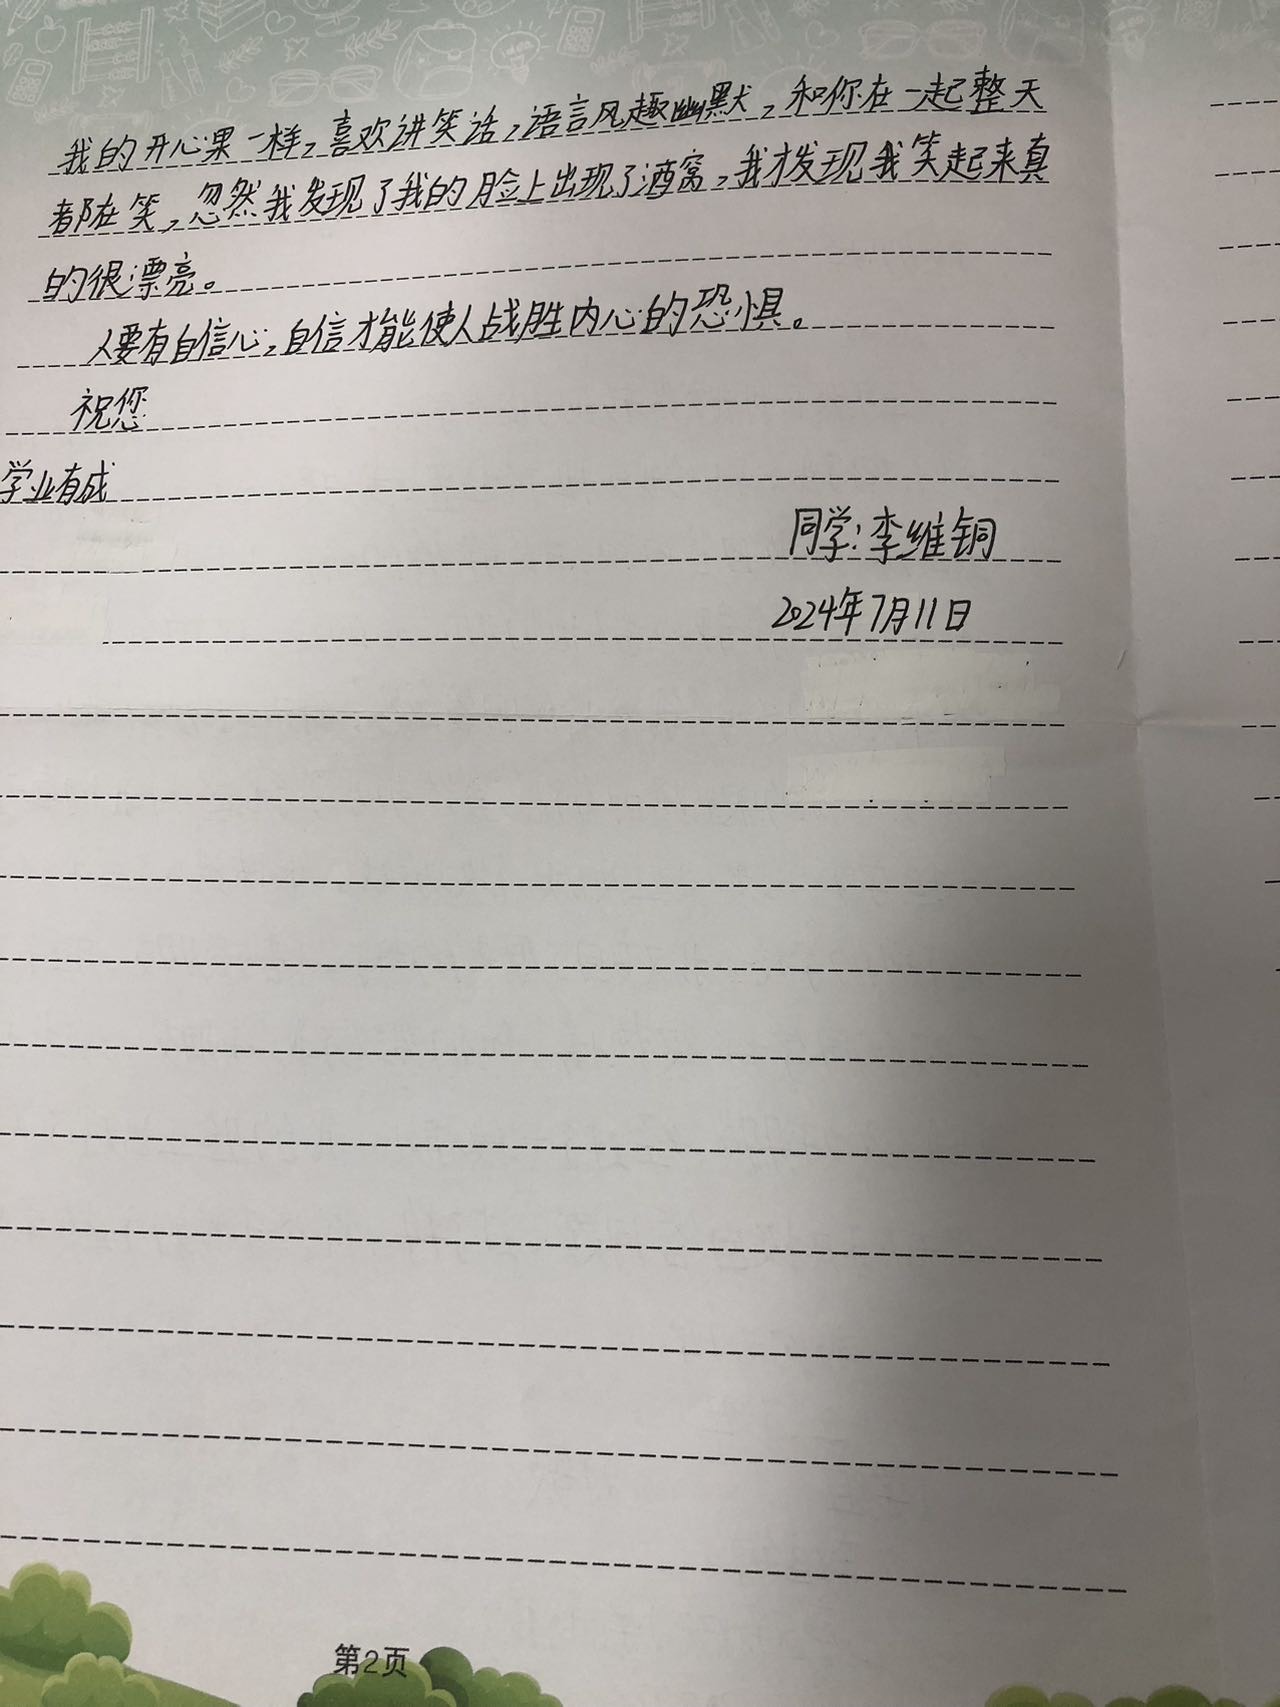 我的开心果一样，喜欢讲笑话，语言风趣幽默，和你在一起整天
都在笑，忽然我发现了我的脸上出现了酒窝，我才发现我笑起来真
的很漂亮。
人要有自信心，自信才能使人战胜内心的恐惧。
祝您
学业有成
同学：李维铜
2024年7月11日
第2页